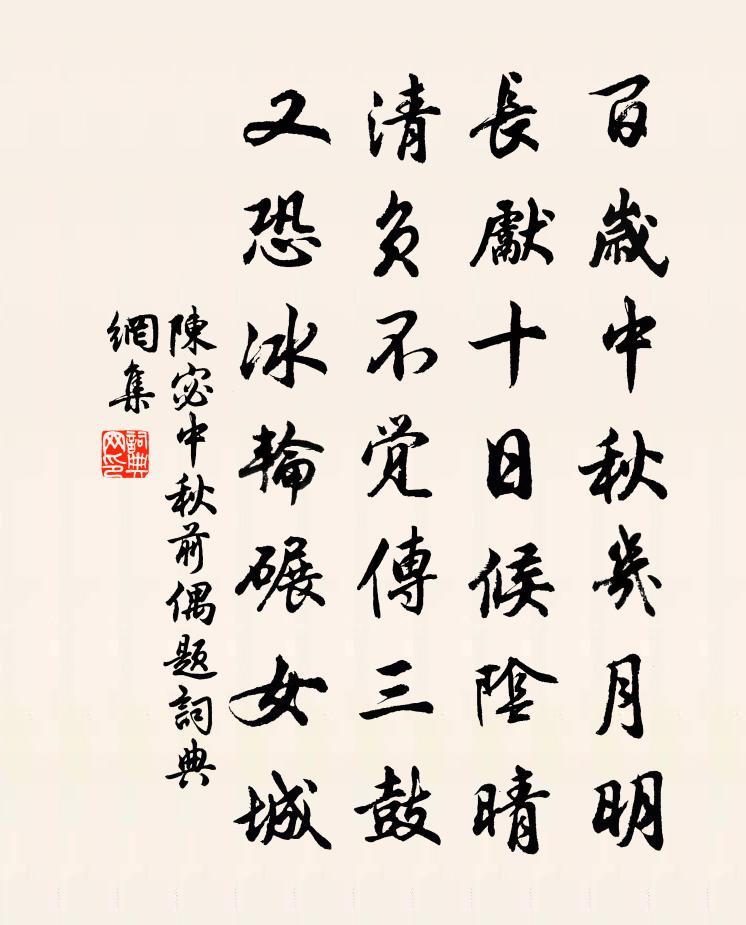 百歲中秋幾月明
長獻十日候陰晴
清負不覺傳三鼓
又恐冰輪碾女城
陳宓中秋前偶題詞典
網集
詞典網印